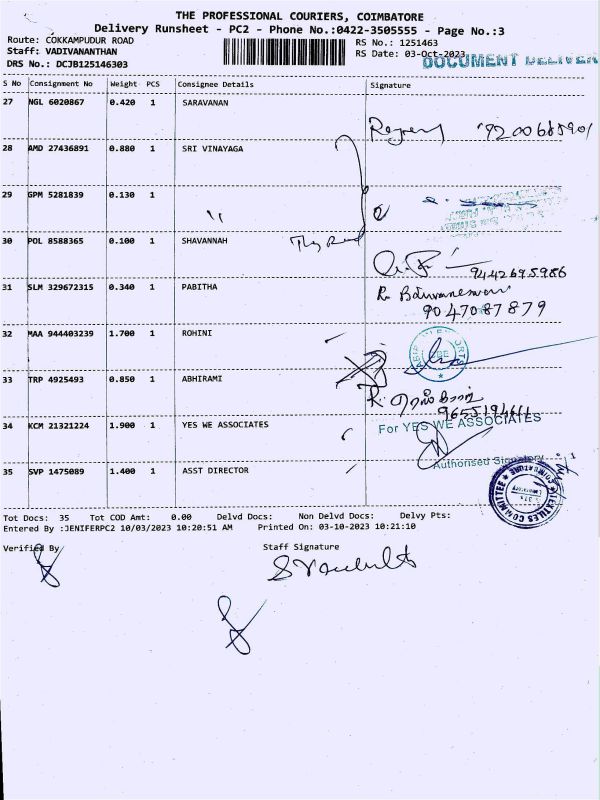 THE PROFESSIONAL COURIERS, COIMBATORE
Delivery Runsheet - PC2 - Phone No.:0422-3505555 - Page No.:3
Route: COKKAMPUDUR ROAD RS No.: 1251463
Staff: VADIVANANTHAN RS Date: 03-Oct-2023
DOCUMENT DELIVER
DRS No.: DCJB125146303
S No Consignment No Weight PCS Consignee Details Signature
27 NGL 6020867 0.420 1 SARAVANAN
9200685901
28 AMD 27436891 0.880 1 SRI VINAYAGA
29 GPM 5281839 0.130 1
30 POL 8588365 0.100 1 SHAVANNAH
9442695986
31 SLM 329672315 0.340 1 PABITHA
9047087879
32 MAA 944403239 1.700 1 ROHINI
33 TRP 4925493 0.850 1 ABHIRAMI
9655194611
34 KCM 21321224 1.900 1 YES WE ASSOCIATES For YES WE ASSOCIATES
Authorised Signatory
35 SVP 1475089 1.400 1 ASST DIRECTOR
TEXTILES COMMITTEE COIMBATORE
Tot Docs: 35 Tot COD Amt: 0.00 Delvd Docs: Non Delvd Docs: Delvy Pts:
Entered By :JENIFERPC2 10/03/2023 10:20:51 AM Printed On: 03-10-2023 10:21:10
Verified By Staff Signature